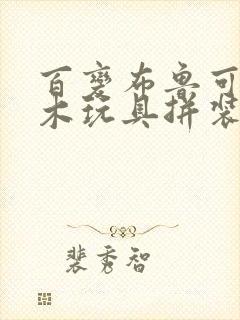 百变布鲁可
木玩具拼装
裴秀智